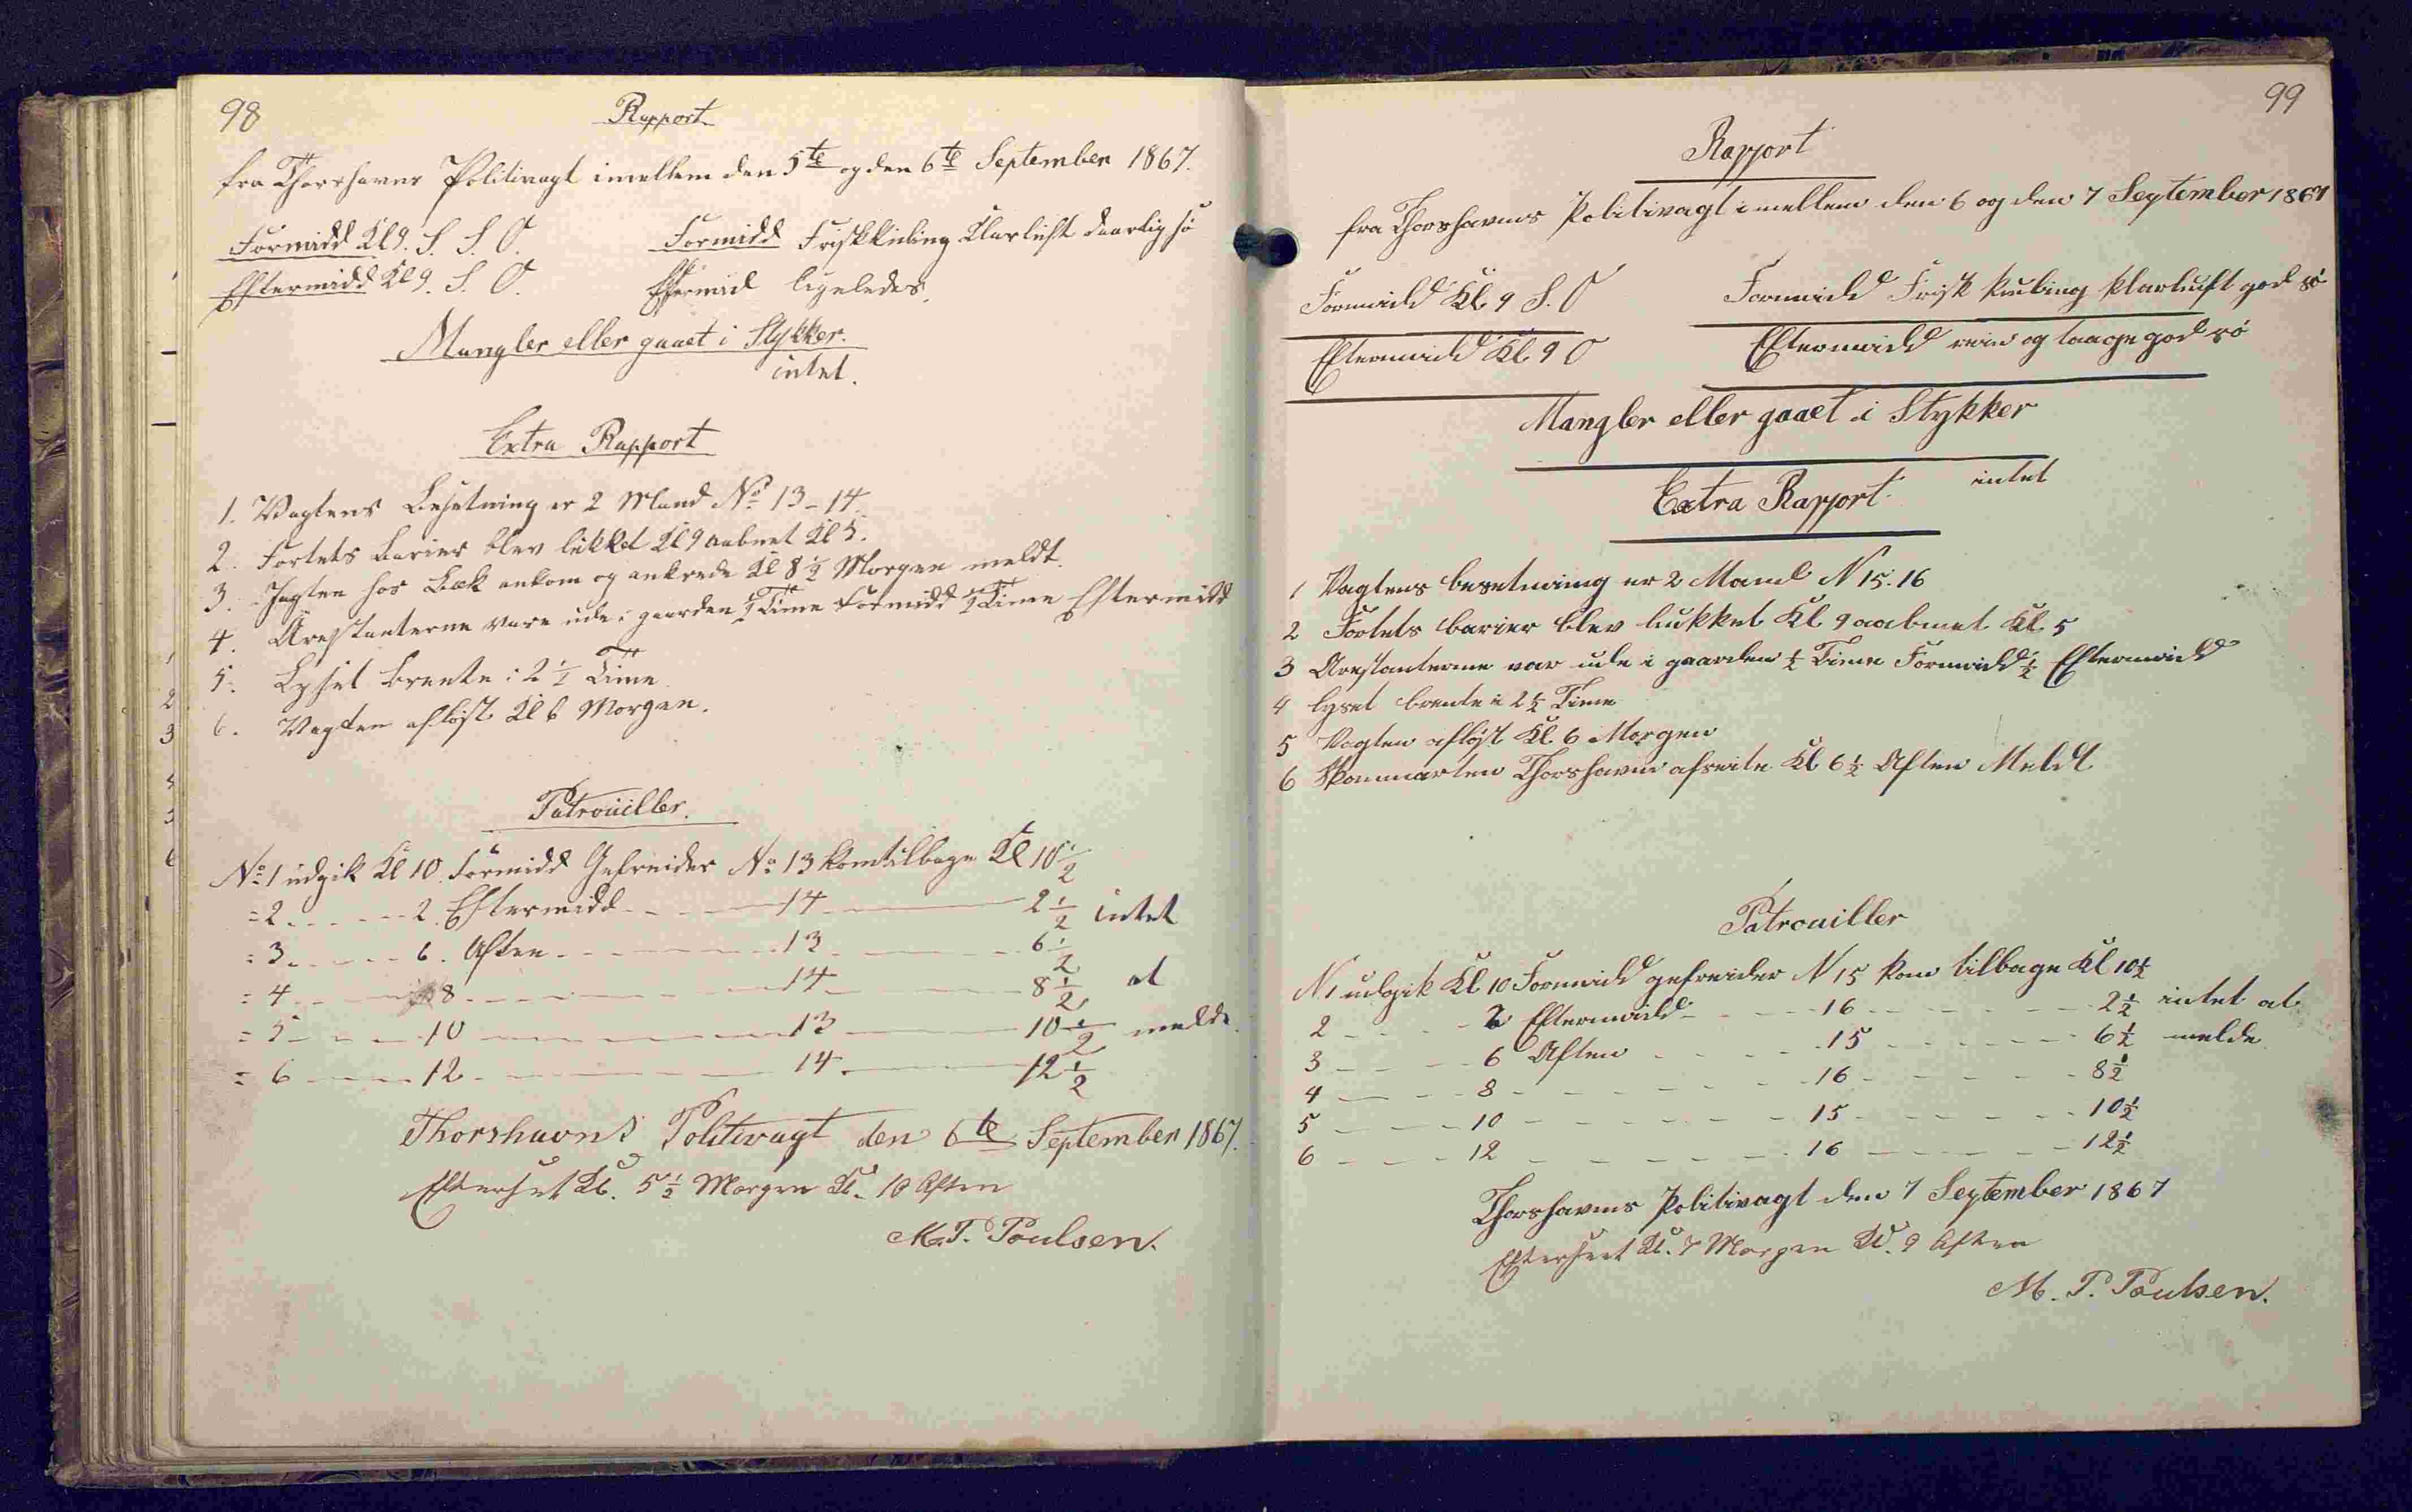 98
Rapport
fra Thorshavns Politivagt imellem den 5te og den 6te September 1867.
Formidd Kl 9. S. S. O.
Formidd Frisk Kuling Klarluft daarlig sö
Eftermidd Kl 9. S. O.
Eftermid ligeledes.
Mangler eller gaaet i Stykker.
intet.
Extra Rapport
1. Vagtens Besetning er 2 Mand No 13-14.
2. Fortets Barier blev lukket Kl 9 aabnet Kl 5.
3. Jagten hos Bæk ankom og ankrede Kl 8 1/2 Morgen meldt.
4. Arestanterne vare ude i gaarden 1/2 Time Formidd 1/2 Time Eftermidd
5. Lyset brente i 2 1/2 Time
6. Vagten aflöst Kl 6 Morgen.
Patrouiller.
No 1 udgik Kl 10 Formidd Gefreider No 13 kom tilbage Kl 10 1/2
= 2 - - - - 2. Eftermidd - - - 14 - - - 2 1/2 intet
= 3 - - - - 6. Aften - - - 13 - - - 6 1/2
= 4 - - - - 8 - - - 14 - - - 8 1/2 at
= 5 - - - 10 - - - 13 - - - 10 1/2 melde.
= 6 - - - 12 - - - 14 - - - 12 1/2
Thorshavns Politivagt den 6te September 1867.
Efterseet Kl. 5 1/2 Morgen Kl. 10 Aften
M. P. Poulsen.
99
Rapport
fra Thorshavns Politivagt imellem den 6 og den 7 September 1867
Formidd Kl 9 S. O
Formidd Frisk kuling klarluft god sö
Eftermidd Kl 9 O
Eftermidd rein og taage god sö
Mangler eller gaaet i Stykker
intet
Extra Rapport
1 Vagtens besetning er 2 Mand N 15. 16
2 Fortets barier blev lukket Kl 9 aabnet Kl 5
3 Arestanterne var ude i gaarden 1/2 Time Formidd 1/2 Eftermidd
4 lyset brente i 2 1/2 Time
5 Vagten aflöst Kl 6 Morgen
6 Skonnarten Thorshavn afreiste Kl 6 1/2 Aften Meldt
Patrouiller
N 1 udgik Kl 10 Formidd gefreider N 15 kom tilbage Kl 10 1/2
2 - - - 2 Eftermidd - - - 16 - - - 2 1/2 intet at
3 - - - 6 Aften - - - 15 - - - 6 1/2 melde
4 - - - 8 - - - 16 - - - 8 1/2
5 - - - 10 - - - 15 - - - 10 1/2
6 - - - 12 - - - 16 - - - 12 1/2
Thorshavns Politivagt den 7 September 1867
Efterseet Kl. 7 Morgen Kl. 9 Aften
M. P. Poulsen.